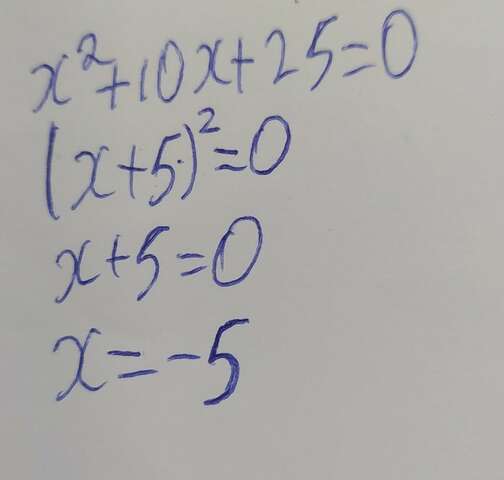 x²+10x+25=0
(x+5)²=0
x+5=0
x=-5